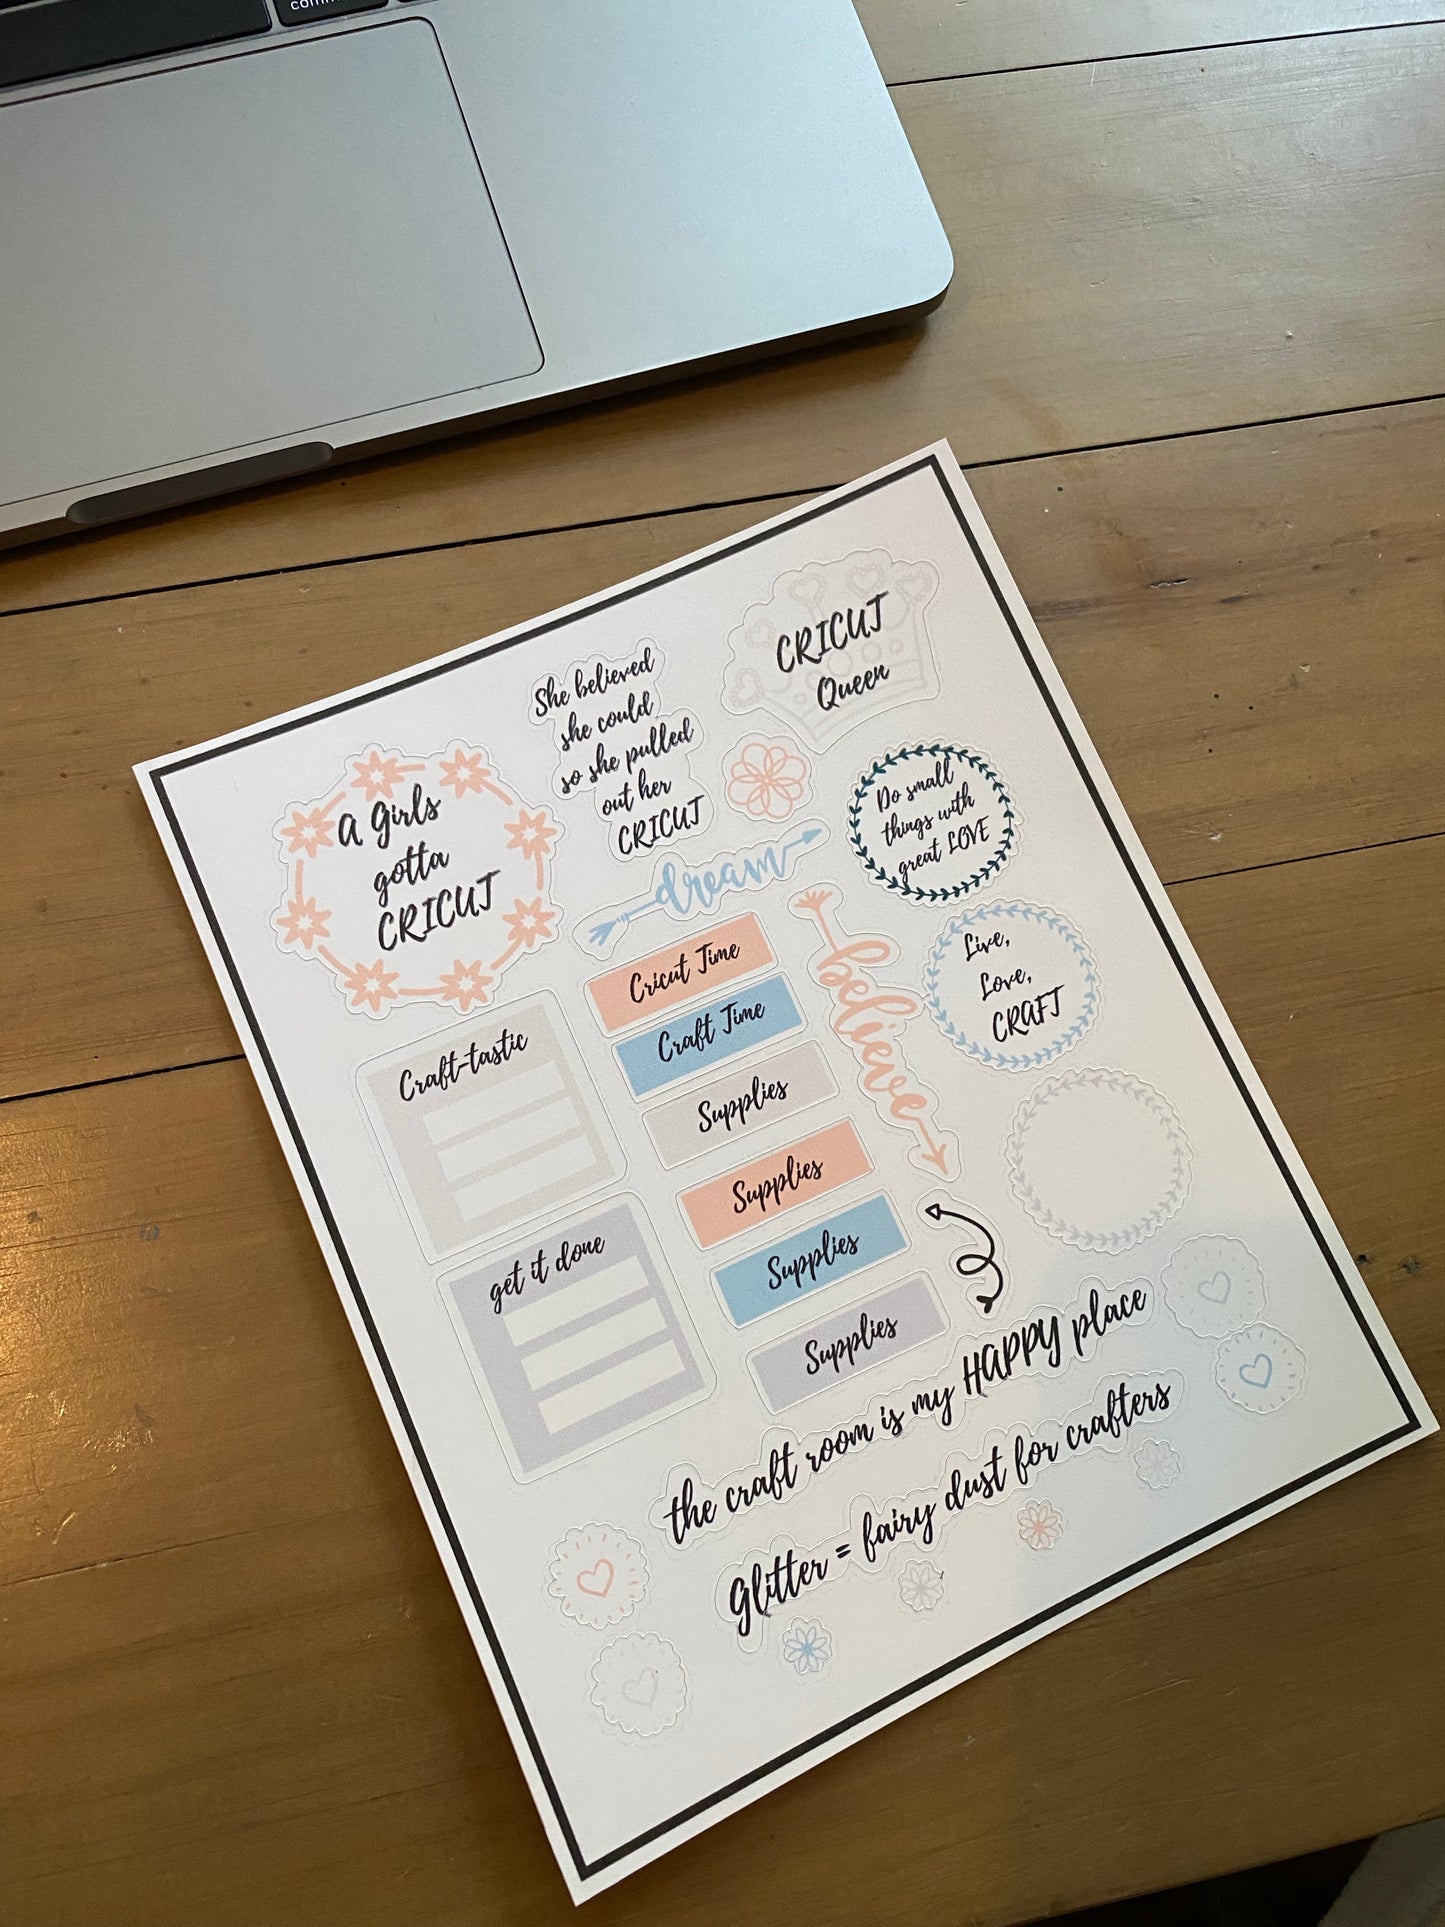 comm
She believed
she could
so she pulled
out her
CRICUT
CRICUT
Queen
A Girls
gotta
CRICUT
Do small
things with
great LOVE
dream
believe
Live,
Love,
CRAFT
Cricut Time
Craft Time
Supplies
Supplies
Supplies
Supplies
Craft-tastic
get it done
the craft room is my HAPPY place
Glitter = fairy dust for crafters